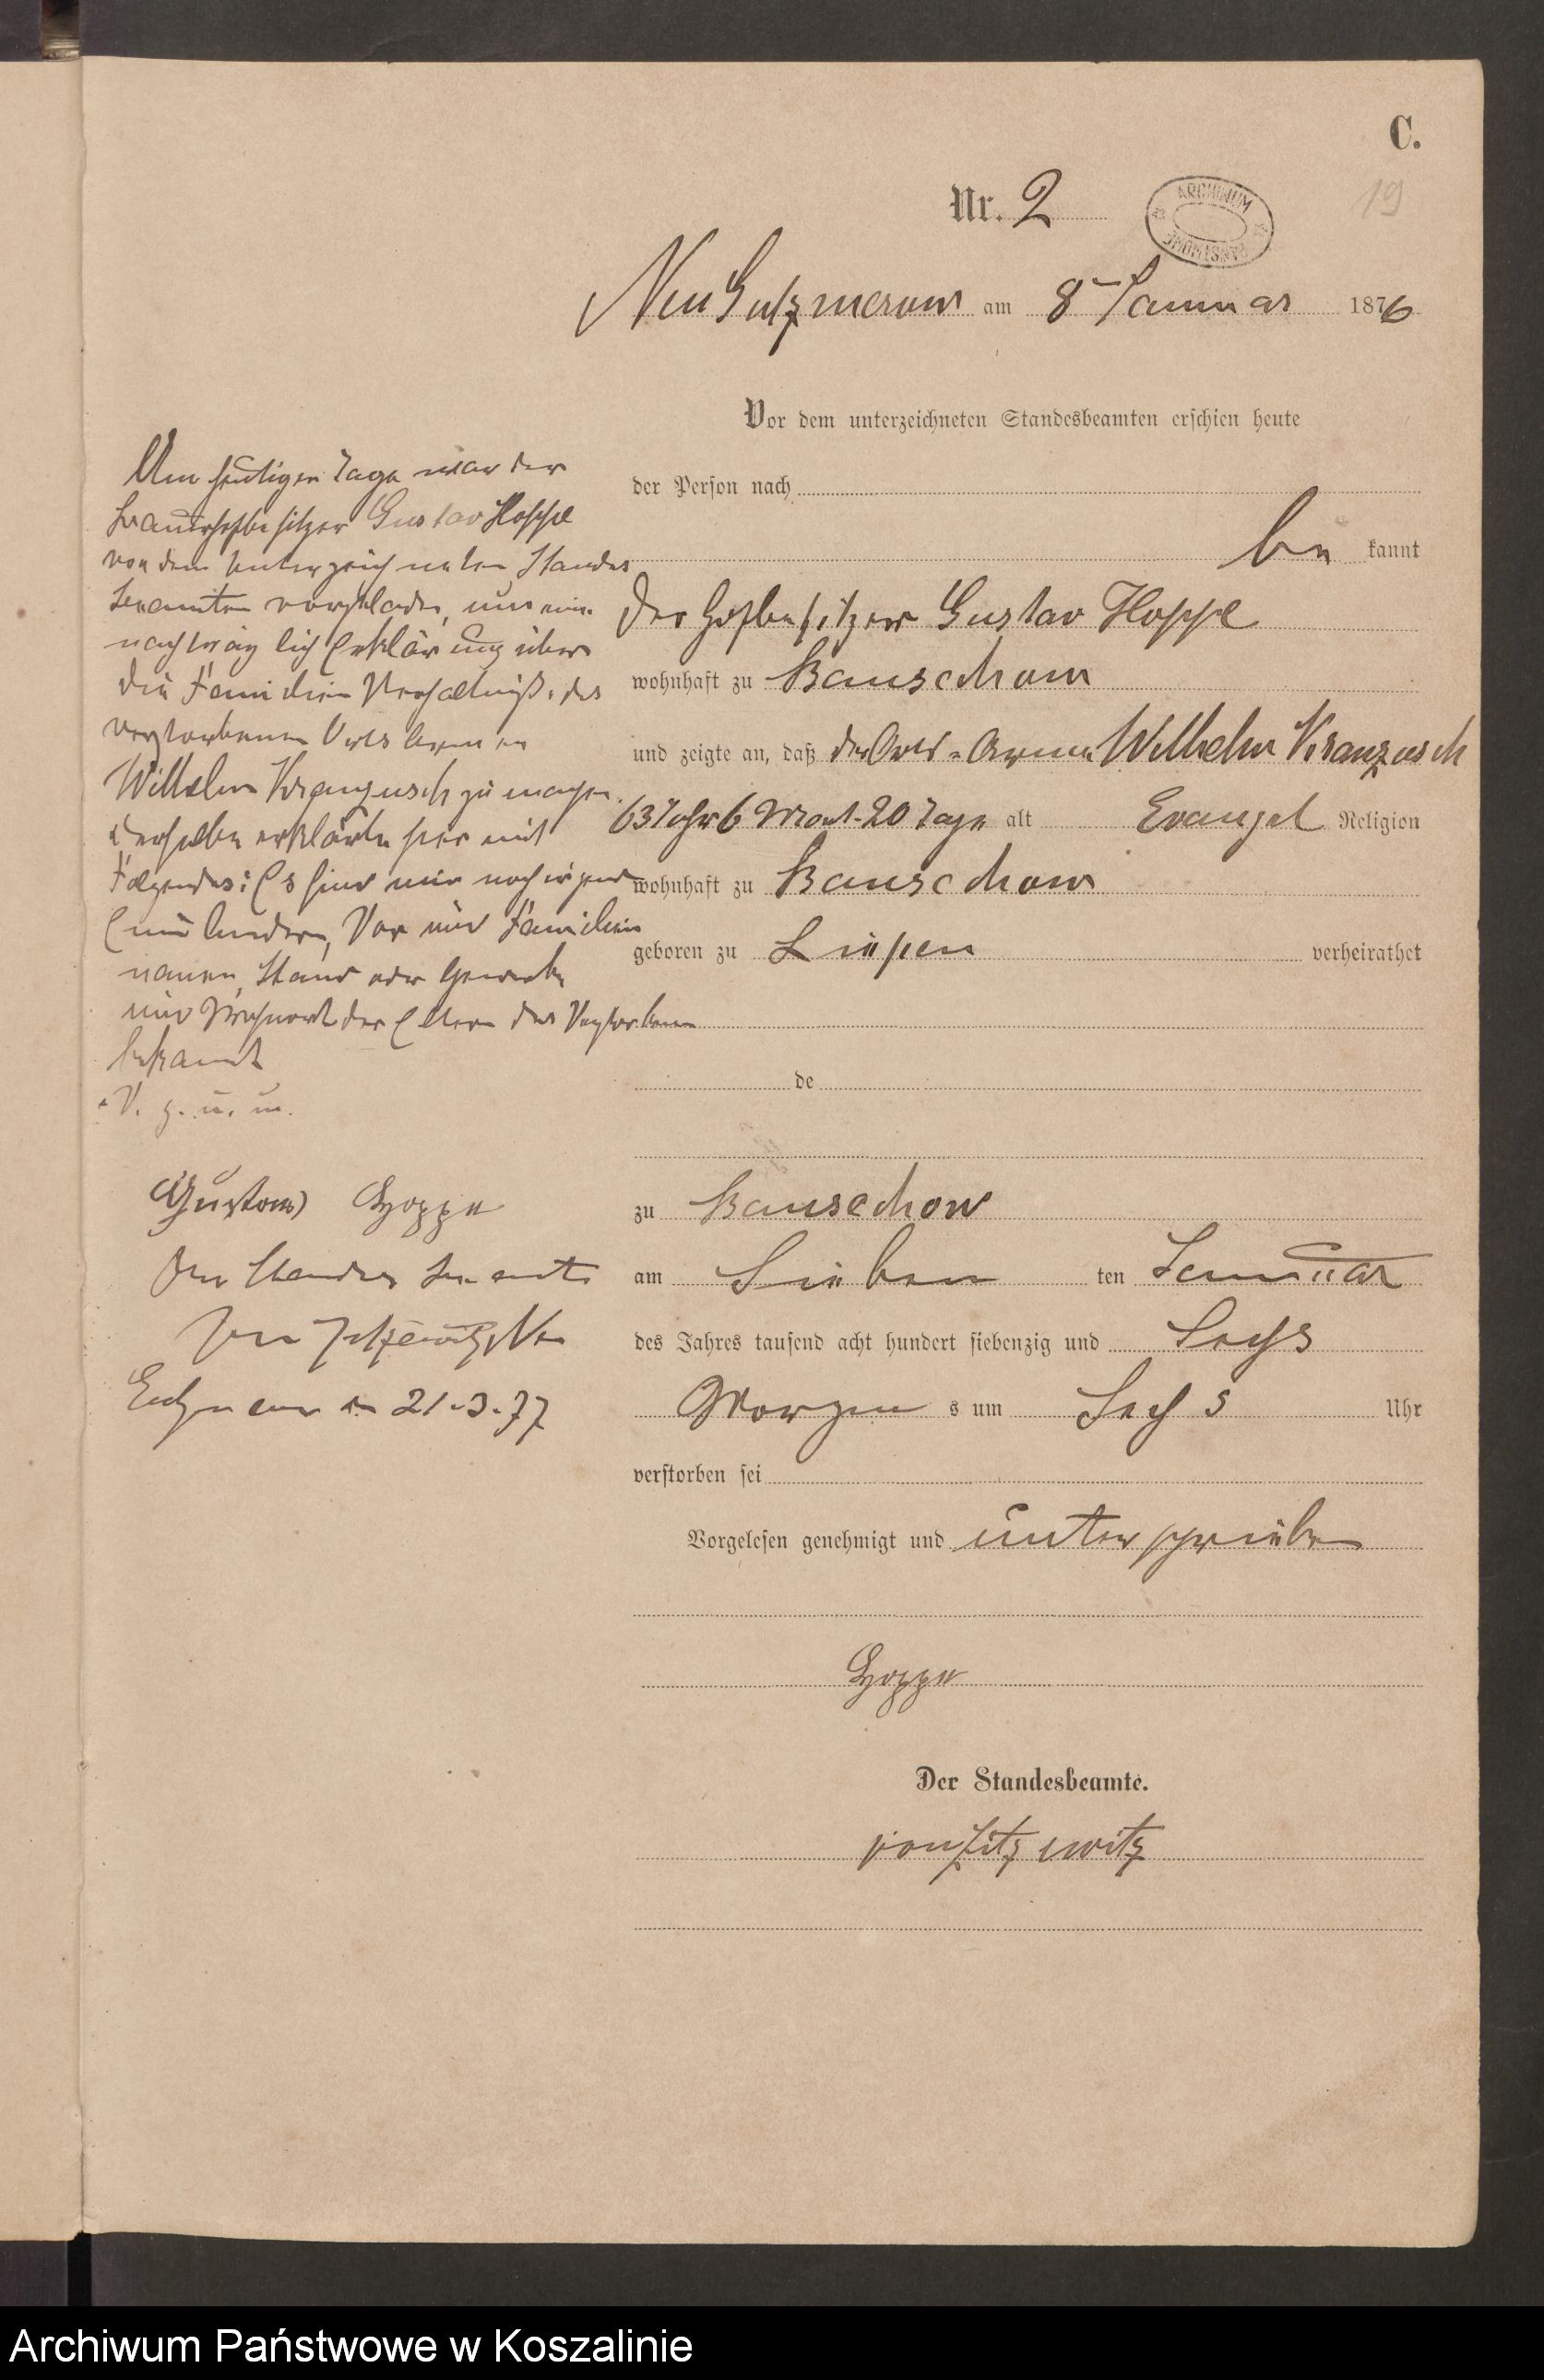 C.
19
Nr. 2
ARCHIWUM PAŃSTWOWE
Neu Gutzmerow am 8 Januar 1876
Vor dem unterzeichneten Standesbeamten erschien heute
der Person nach
be kannt
Der Hofbesitzer Gustav Hoppe
wohnhaft zu Banschow
und zeigte an, daß der Orts-Arme Wilhelm Kranzusch
63 Jahr 6 Mont 20 Tage alt Evangel Religion
wohnhaft zu Banschow
geboren zu Liepen verheirathet
de
zu Banschow
am Sieben ten Januar
des Jahres tausend acht hundert siebenzig und Sechs
Morgen s um Sechs Uhr
verstorben sei
Vorgelesen genehmigt und unterschrieben
Hoppe
Der Standesbeamte.
von Zitzewitz
Am heutigen Tage war der
Bauerhofbesitzer Gustav Hoppe
von dem Unterzeichneten Standes
beamten vorgeladen, um eine
nachträglich Erklärung über
die Familien Verhältniße des
verstorbenen Orts Armen
Wilhelm Kranzusch zu machen.
derselbe erklärte hier mit
Folgendes: Es sind mir noch irgend
Vor und Familien
namen, Stand oder Gewerbe
und Wohnort der Eltern des Verstorbenen
bekannt
V. g. u. u.
Gustav Hoppe
Der Standes beamte
von Zitzewitz
21-3-77
Archiwum Państwowe w Koszalinie